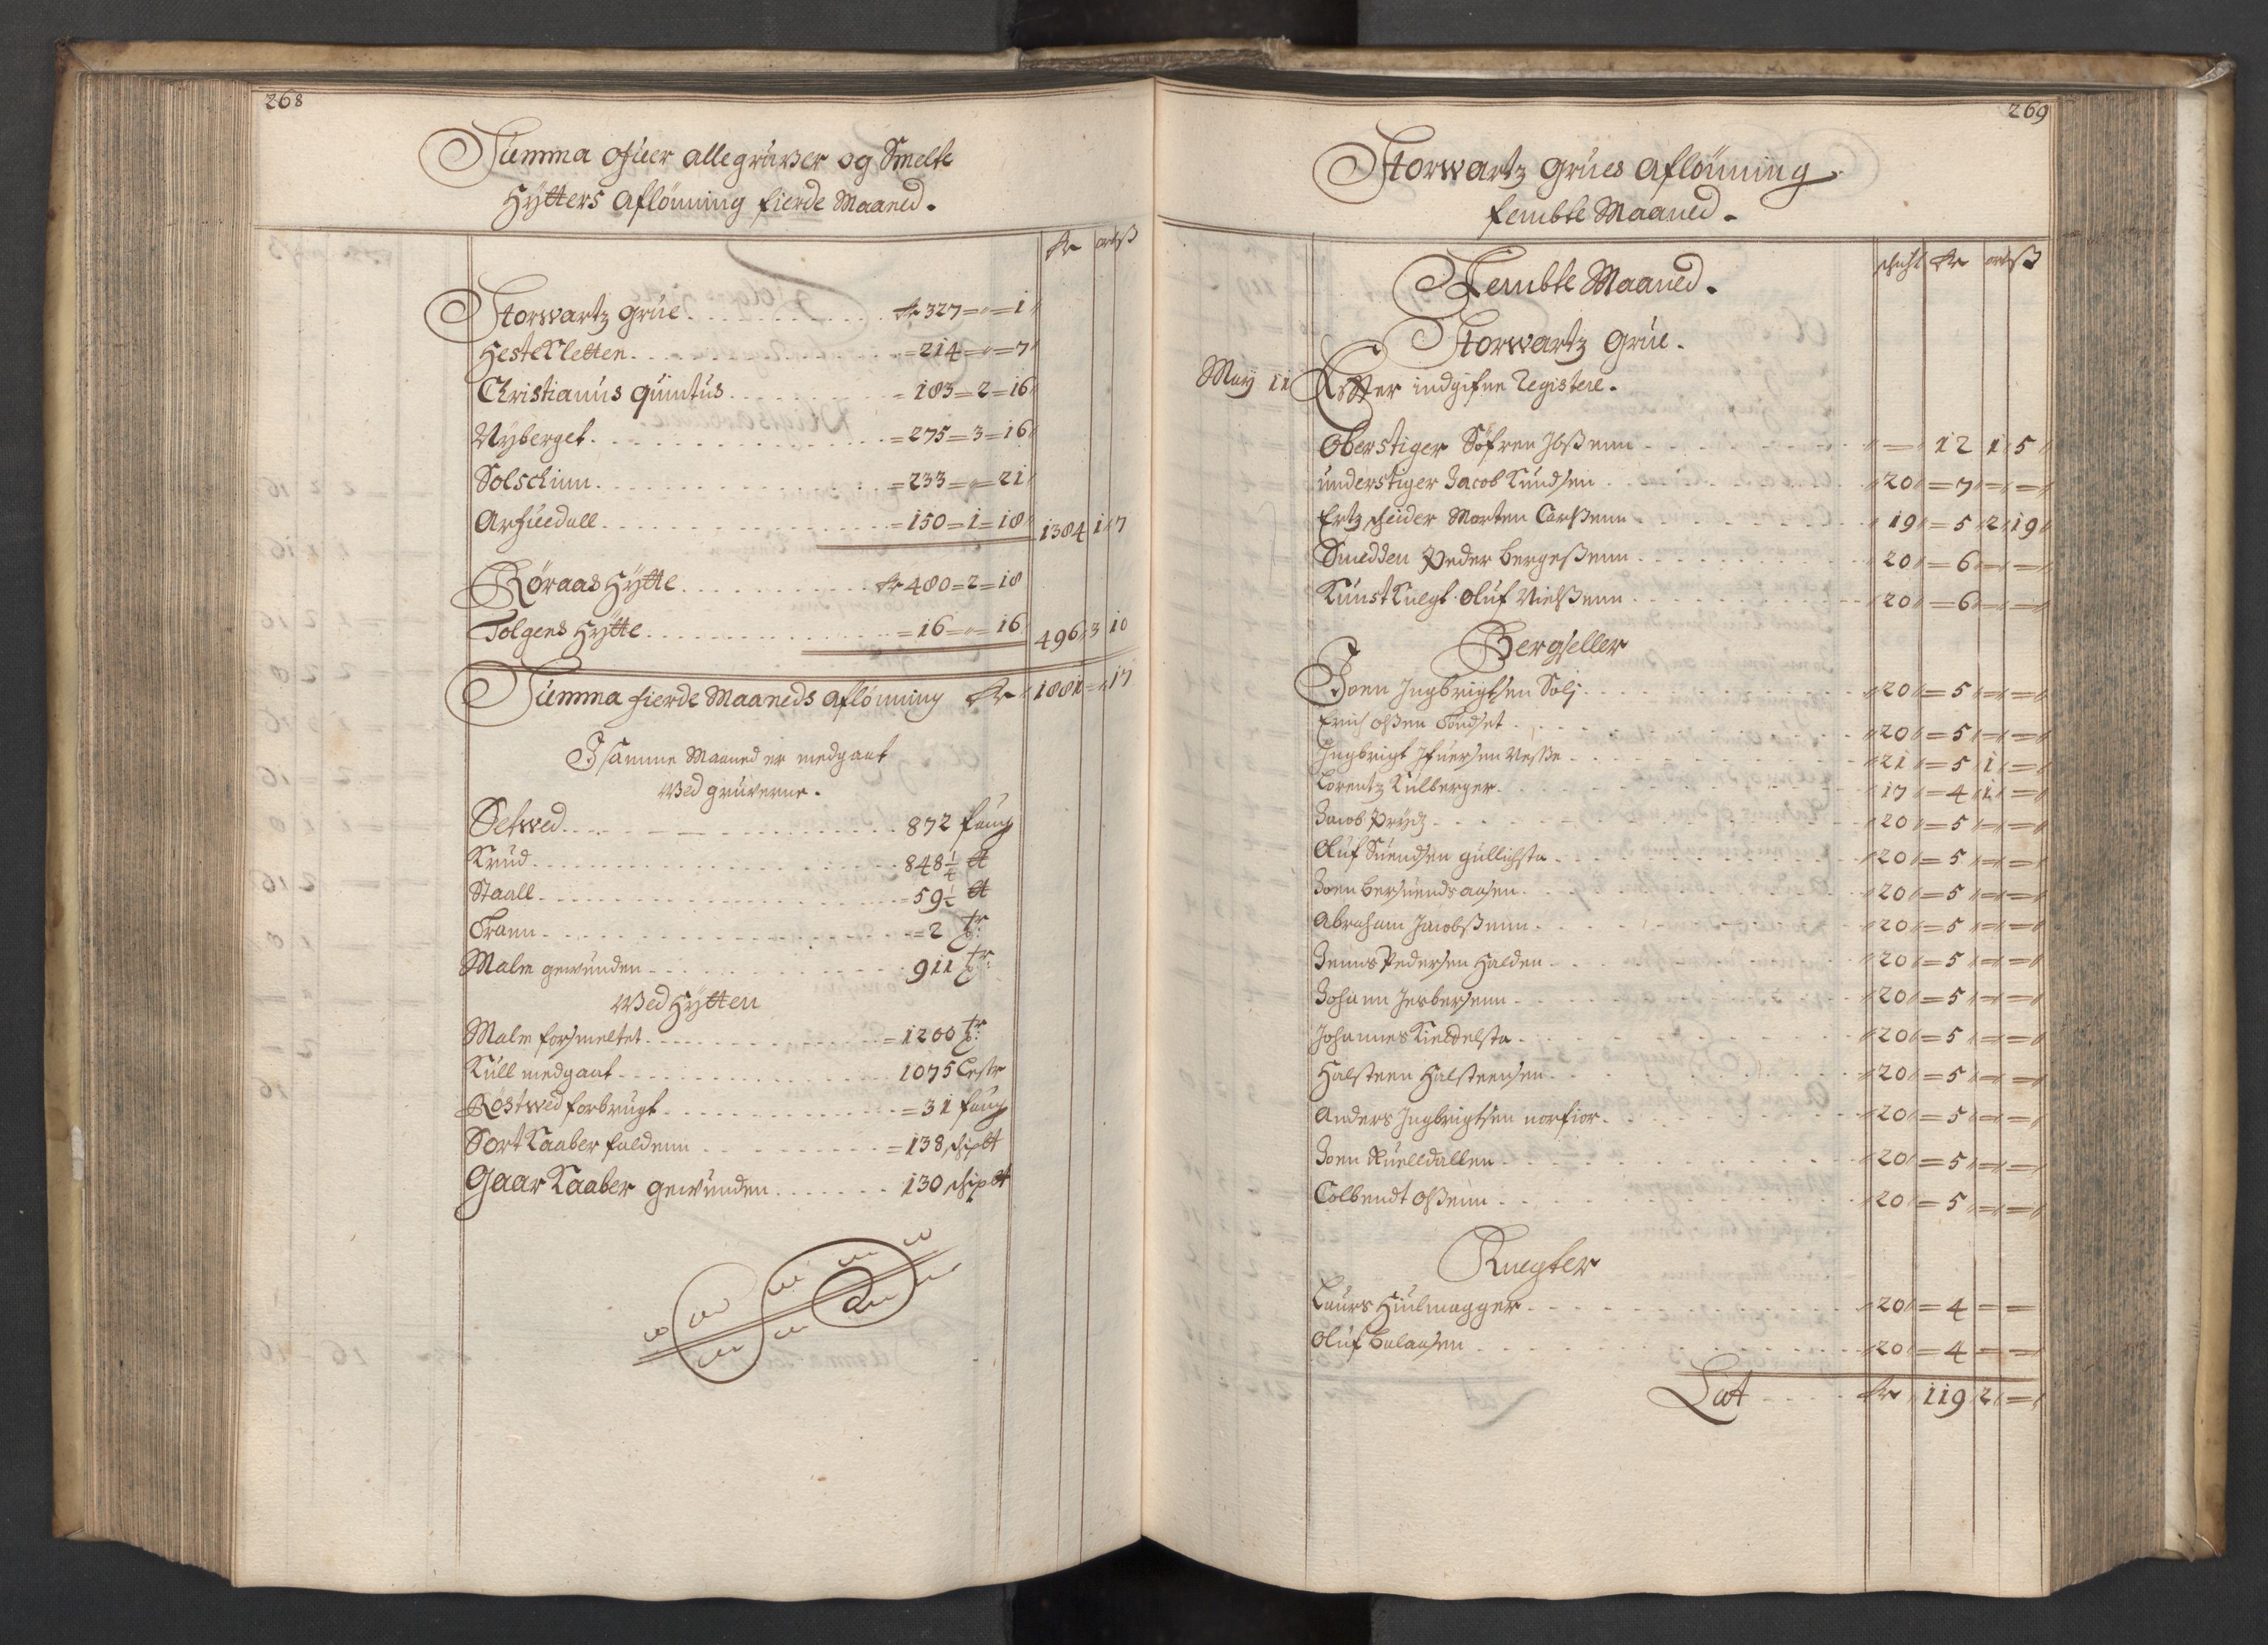 268
Summa ofuer alle gruver og Smelte
Hÿtters Aflönning fierde Maaned.
Rdr ort ß
Storwartz grue Rdr 327 = „ = 1 „
HesteKletten = 214 = „ = 7 „
Christianus quintus = 183 = 2 = 16 „
Nÿberget = 275 = 3 = 16 „
Solschinn = 233 = „ = 21 „
Arfuedall = 150 = 1 = 18 „ 1384 „ 1 „ 7
Røraas Hÿtte Rdr 480 = 2 = 18
Tolgens Hÿtte = 16 = „ = 16 496 „ 3 10
Summa fierde Maaneds Aflönning Rdr „ 1881 = „ 17
I samme Maaned er medgaat
Wed gruverne.
Setwed 872 faug
Krud 848 1/4 ℔
Staall = 59 1/4 ℔
Trann = 2 tr:
Malm gewunden 911 tr:
Wed Hÿtten
Malm forsmeltet = 1200 tr:
Kull medgaat 1075 Lestr
Rostwed forbrugt = 31 faug
Sort Kaaber faldenn = 138 schip℔
Gaar Kaaber gewunden 130 schip℔
269
Storwartz grues Aflönning
fembte Maaned.
schicht Rdr ort ß
Fembte Maaned.
Storwartz Grue.
Maÿ 11 Effter indgifne Registere.
Oberstiger Söfren Ibßenn „ = „ 12 1 „ 5 „
understiger Jacob Knudsen „ 20 „ = 7 „ = „ = „
Ertzscheider Morten Carßenn „ 19 „ = 5 „ 2 „ 19 „
Smedden Peder Bergeßenn 20 „ = 6 = „ = „
KunstKnegt Oluf Nielßenn „ 20 „ = 6 „ = „ = „
Bergseller
Joen Ingbrigtsen Solj „ 20 „ = 5 „ = „ = „
Erich Olßen Tøndset „ 20 „ = 5 „ = „ = „
Ingbrigt Ifuersen Neße „ 21 „ = 5 „ 1 „ = „
Lorentz Kulberger „ 17 „ = 4 „ 1 „ = „
Jacob Prÿtz „ 20 „ = 5 „ = „ = „
Oluf Suendsen gullichsta „ 20 „ = 5 „ = „ = „
Joen Bersuendsaasen „ 20 „ = 5 „ = „ = „
Abraham Jacobßenn „ 20 „ = 5 „ = „ = „
Jenns Pedersen Halden „ 20 „ = 5 „ = „ = „
Johann Jesbersenn „ 20 „ = 5 „ = „ = „
Johannes Kieldelsta „ 20 „ = 5 „ = „ = „
Halsteen Halsteensen „ 20 „ = 5 „ = „ = „
Anders Ingbrigtsen norfior „ 20 „ = 5 „ = „ = „
Joen Kuelldallen „ 20 „ = 5 „ = „ = „
Colbendt Olßenn „ 20 „ = 5 „ = „ = „
Knegter
Laurs Hiulmagger „ 20 „ = 4 = =
Oluf Balaasen „ 20 „ = 4 = =
Lat Rdr „ 119 „ 2 „ = „